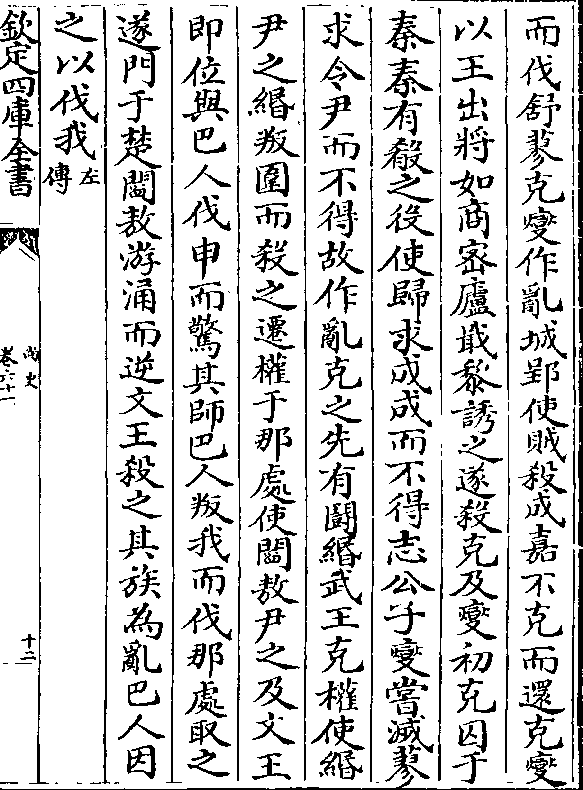 而伐舒蓼克燮作亂城郢使賊殺成嘉不克而還克燮
以王出將如商宻廬戢黎誘之遂殺克及燮初克囚于
秦秦有殽之役使歸求成成而不得志公子燮嘗滅蓼
求令尹而不得故作亂克之先有鬬緡武王克權使緡
尹之緡叛圍而殺之遷權于那處使閻敖尹之及文王
即位與巴人伐申而驚其師巴人叛我而伐那處取之
遂門于楚閻敖游涌而逆文王殺之其族為亂巴人因
之以伐我左傳
欽定四庫全書
尚史
卷六十一
十二